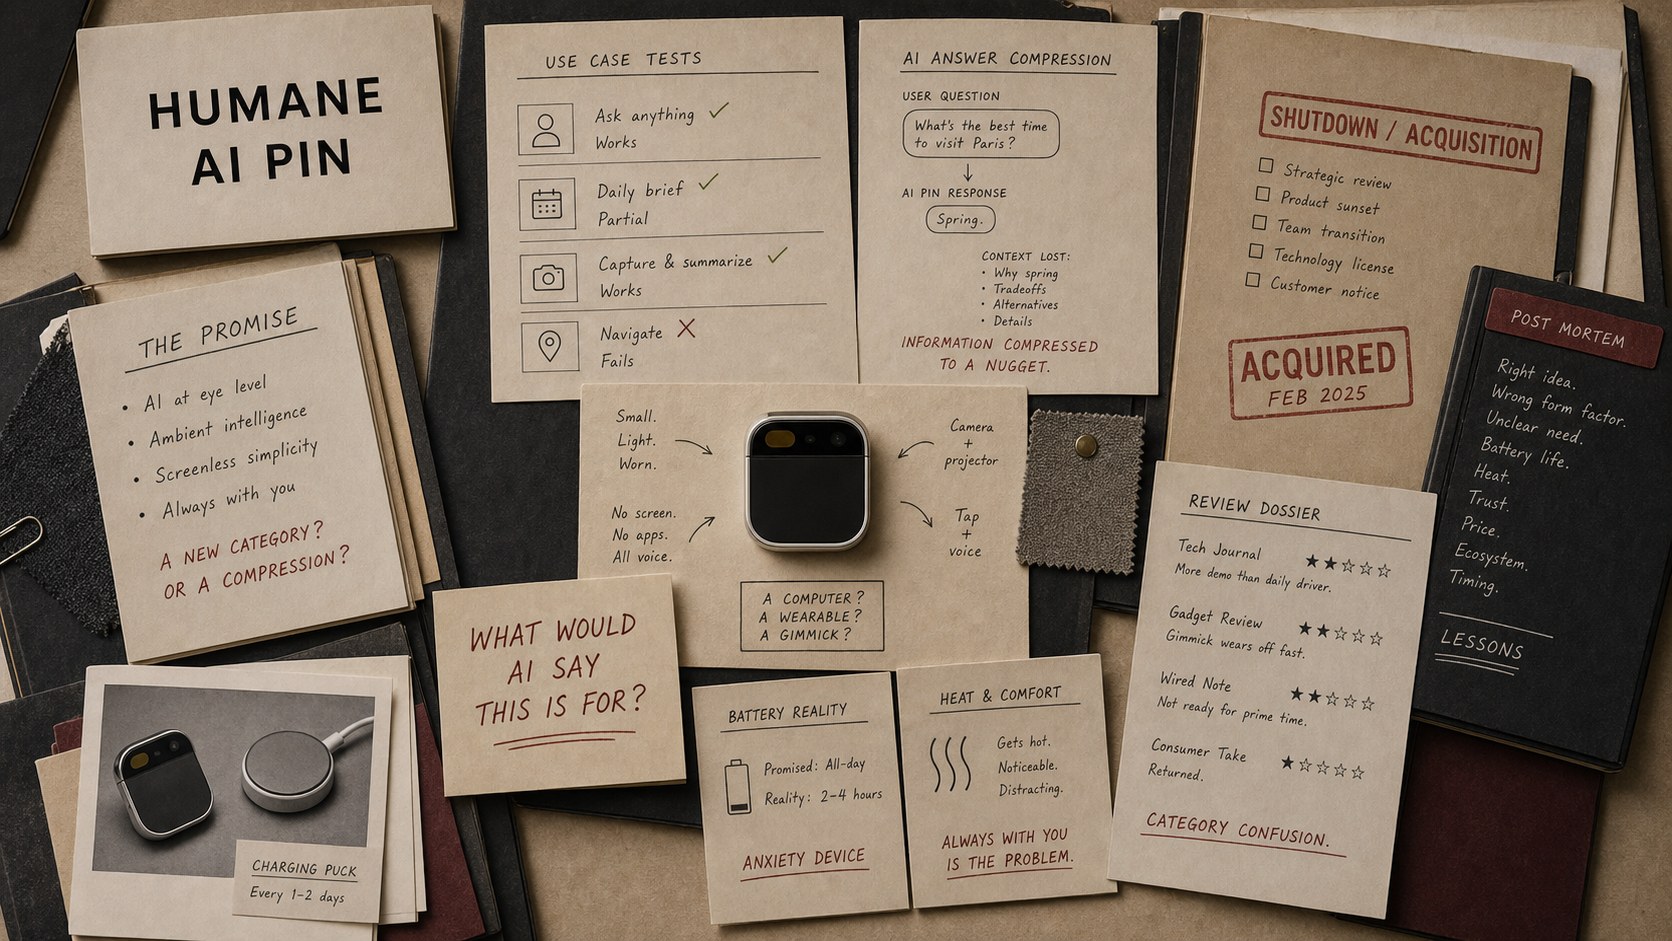 HUMANE
AI PIN
THE PROMISE
• AI at eye level
• Ambient intelligence
• Screenless simplicity
• Always with you
A NEW CATEGORY?
OR A COMPRESSION?
CHARGING PUCK
Every 1-2 days
USE CASE TESTS
Ask anything ✓
Works
Daily brief ✓
Partial
Capture & summarize ✓
Works
Navigate X
Fails
AI ANSWER COMPRESSION
USER QUESTION
What's the best time
to visit Paris?
AI PIN RESPONSE
Spring.
CONTEXT LOST:
• Why spring
• Tradeoffs
• Alternatives
• Details
INFORMATION COMPRESSED
TO A NUGGET.
Small.
Light.
Worn.
No screen.
No apps.
All voice.
Camera
+
projector
Tap
+
voice
A COMPUTER?
A WEARABLE?
A GIMMICK?
WHAT WOULD
AI SAY
THIS IS FOR?
BATTERY REALITY
Promised: All-day
Reality: 2-4 hours
ANXIETY DEVICE
HEAT & COMFORT
Gets hot.
Noticeable.
Distracting.
ALWAYS WITH YOU
IS THE PROBLEM.
SHUTDOWN / ACQUISITION
Strategic review
Product sunset
Team transition
Technology license
Customer notice
ACQUIRED
FEB 2025
REVIEW DOSSIER
Tech Journal ★★☆☆☆
More demo than daily driver.
Gadget Review ★★☆☆☆
Gimmick wears off fast.
Wired Note ★★☆☆☆
Not ready for prime time.
Consumer Take ★☆☆☆☆
Returned.
CATEGORY CONFUSION.
POST MORTEM
Right idea.
Wrong form factor.
Unclear need.
Battery life.
Heat.
Trust.
Price.
Ecosystem.
Timing.
LESSONS